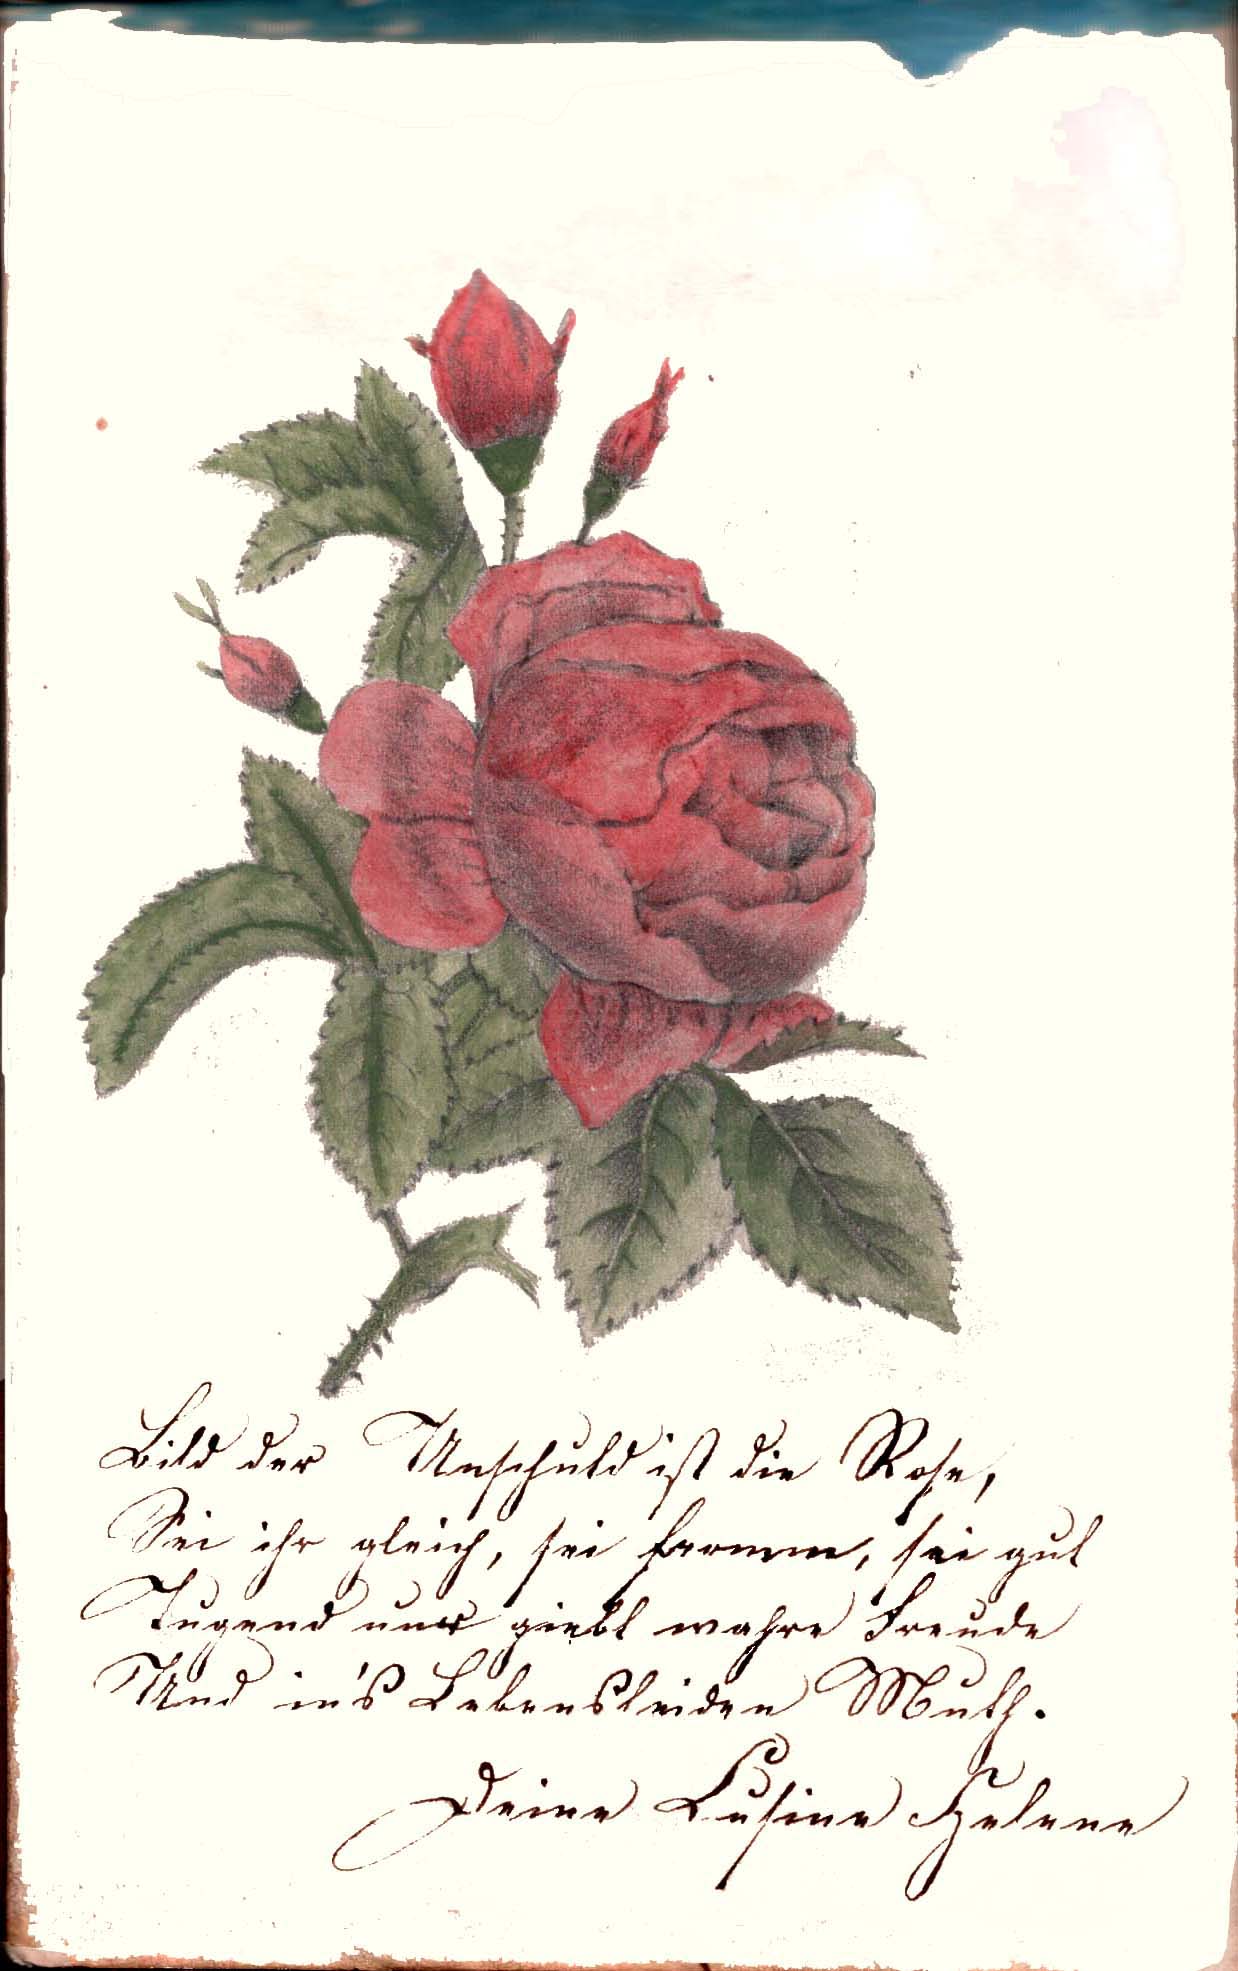 Bild der Unschuld ist die Rose,
Sei ihr gleich, sei fromm, sei gut
Tugend nur giebt wahre Freude
Und in's Lebensleiden Muth.
Deine Cusine Helene